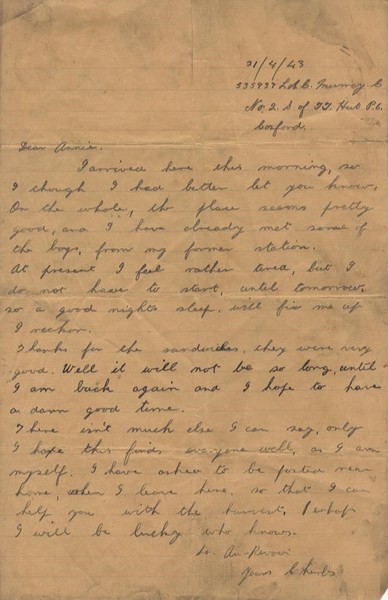 21/4/43
535937 L.A.C. Murray. C
No, 2. S of T.T. Hut P.6.
Cosford.
Dear Annie.
I arrived here this morning, so
I though I had better let you know.
On the whole, the place seems pretty
good, and I have already met some of
the boys, from my former station.
At present I feel rather tired, but I
do not have to start, until tomorrow,
so a good nights sleep, will fix me up
I reckon.
Thanks for the sandwiches, they were very
good. Well it will not be so long, until
I am back again and I hope to have
a damn good time.
There isn't much else I can say, only
I hope this finds everyone well, as I am
myself. I have asked to be posted near
home, when I leave here, so that I can
help you with the harvest, Perhaps
I will be lucky who knows.
So Au-Revoir
Yours